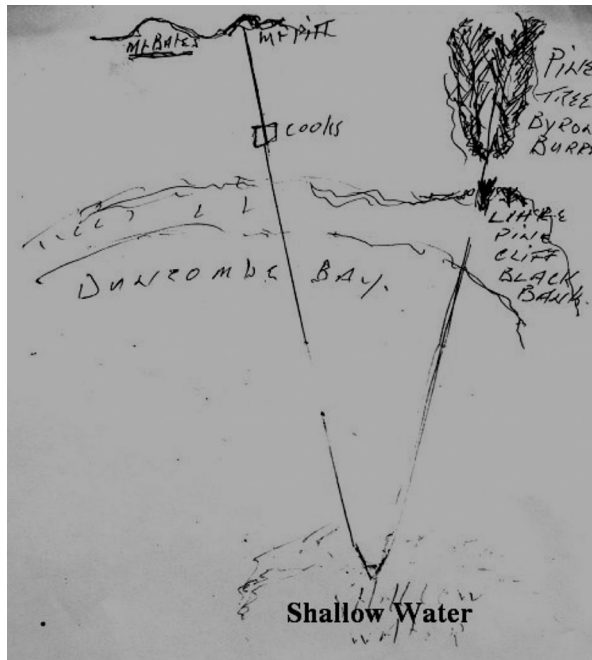 Mt BATES
Mt PITT
COOKS
PINE
TREE
BYRON
BURR
PINE
CLIFF
BLACK
BANK.
DUNCOMBE BAY.
Shallow Water